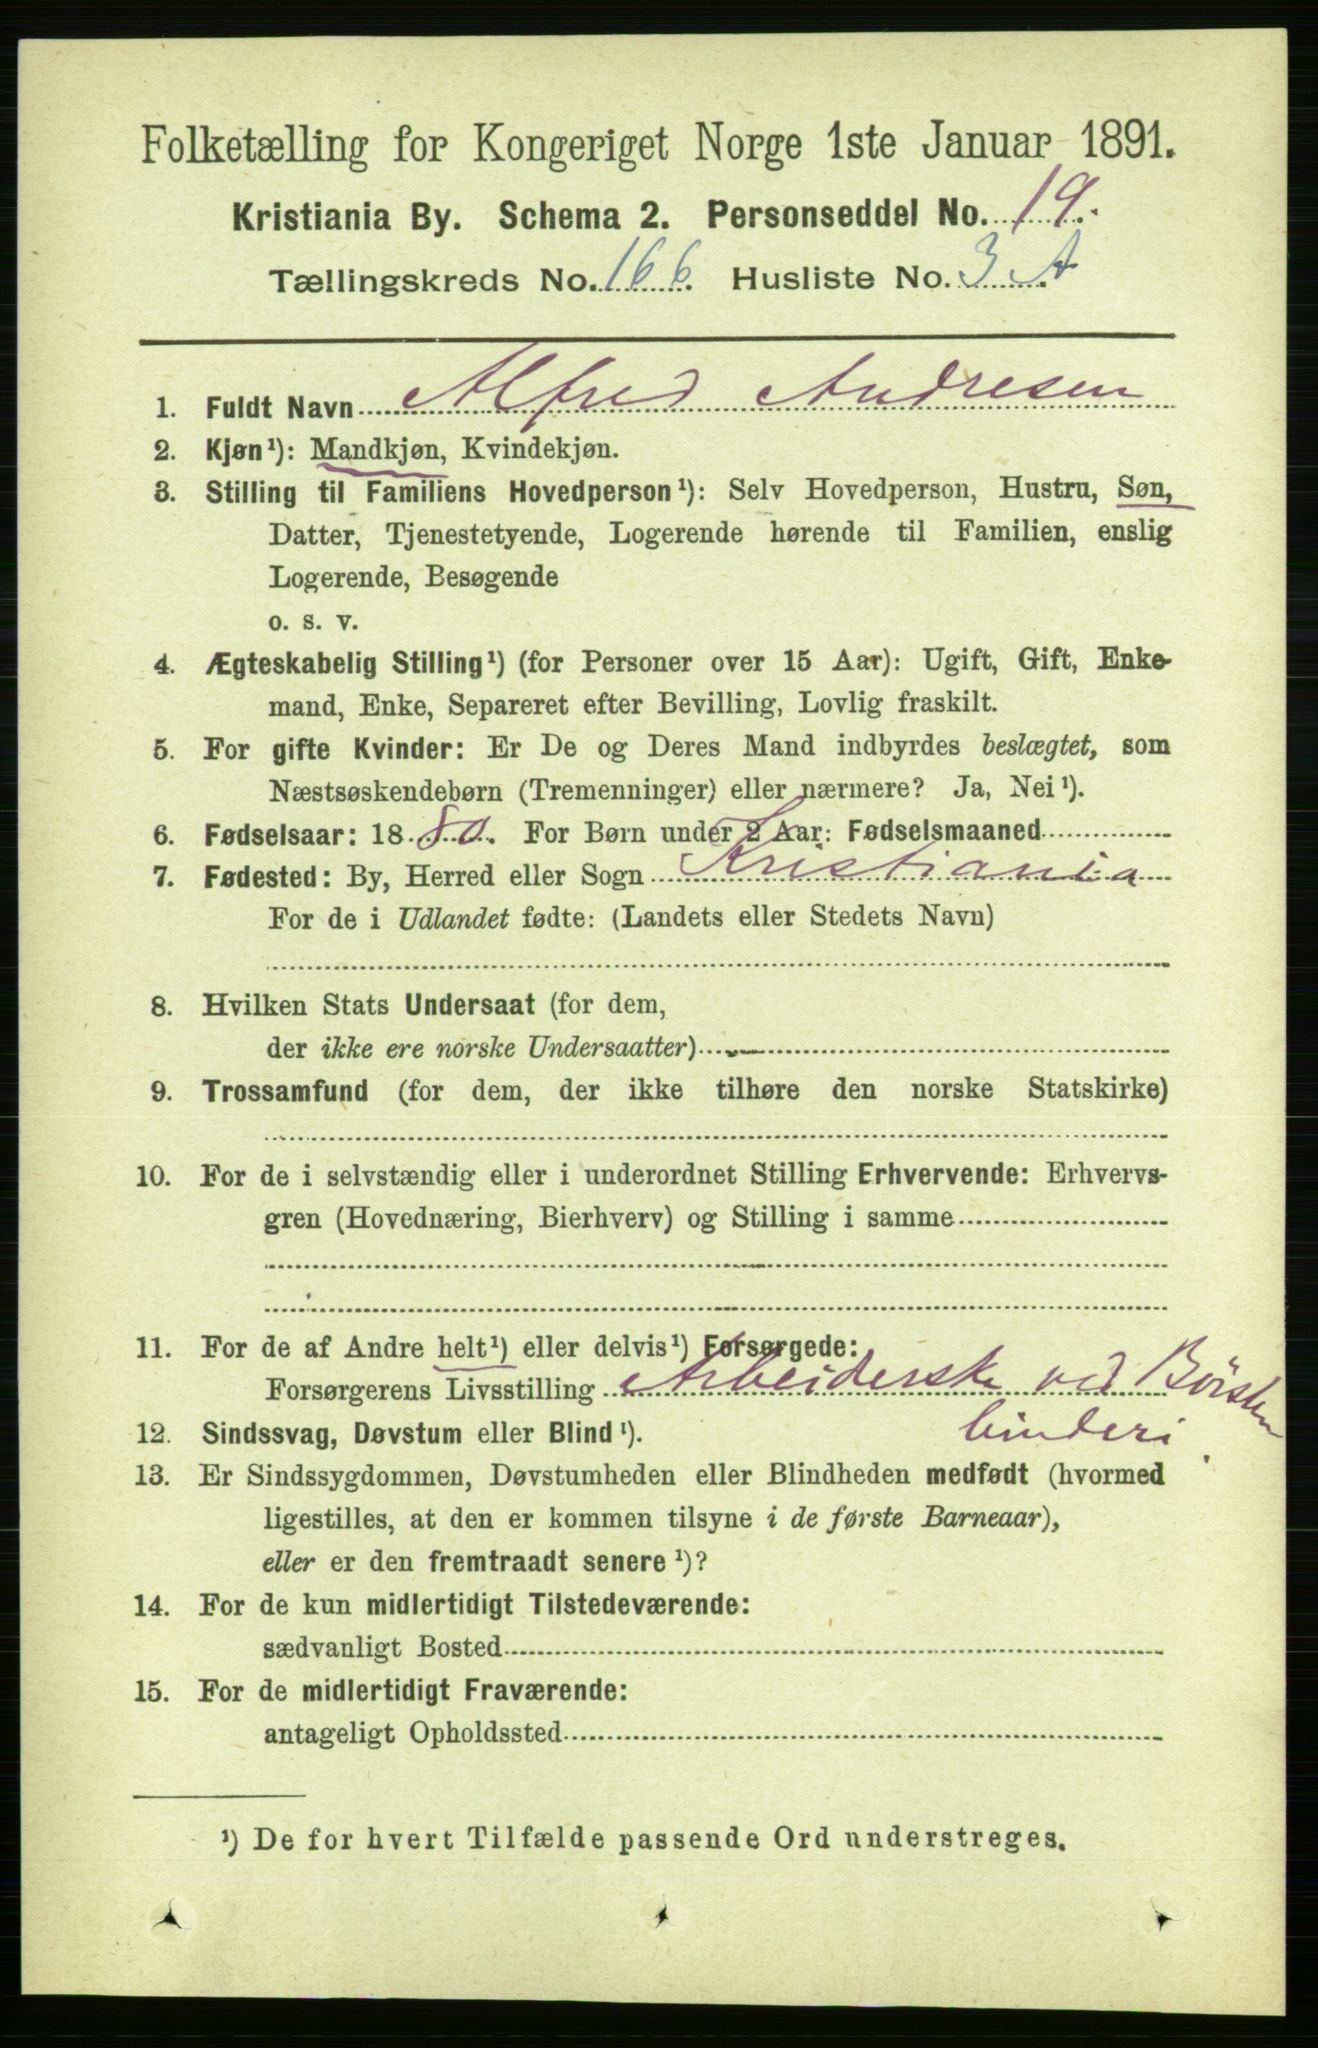 Folketælling for Kongeriget Norge 1ste Januar 1891.
Kristiania By. Schema 2. Personseddel No. 19.
Tællingskreds No. 166. Husliste No. 3 A
1. Fuldt Navn Alfred Andresen
2. Kjøn¹): Mandkjøn, Kvindekjøn.
3. Stilling til Familiens Hovedperson¹): Selv Hovedperson, Hustru, Søn,
Datter, Tjenestetyende, Logerende hørende til Familien, enslig
Logerende, Besøgende
o. s. v.
4. Ægteskabelig Stilling¹) (for Personer over 15 Aar): Ugift, Gift, Enke-
mand, Enke, Separeret efter Bevilling, Lovlig fraskilt.
5. For gifte Kvinder: Er De og Deres Mand indbyrdes beslægtet, som
Næstsøskendebørn (Tremenninger) eller nærmere? Ja, Nei¹).
6. Fødselsaar: 1880. For Børn under 2 Aar: Fødselsmaaned
7. Fødested: By, Herred eller Sogn Kristiania
For de i Udlandet fødte: (Landets eller Stedets Navn)
8. Hvilken Stats Undersaat (for dem,
der ikke ere norske Undersaatter)
9. Trossamfund (for dem, der ikke tilhøre den norske Statskirke)
10. For de i selvstændig eller i underordnet Stilling Erhvervende: Erhvervs-
gren (Hovednæring, Bierhverv) og Stilling i samme
11. For de af Andre helt¹) eller delvis¹) Forsørgede:
Forsørgerens Livsstilling Arbeiderske ved Börsten
binderi
12. Sindssvag, Døvstum eller Blind¹).
13. Er Sindssygdommen, Døvstumheden eller Blindheden medfødt (hvormed
ligestilles, at den er kommen tilsyne i de første Barneaar),
eller er den fremtraadt senere¹)?
14. For de kun midlertidigt Tilstedeværende:
sædvanligt Bosted
15. For de midlertidigt Fraværende:
antageligt Opholdssted
¹) De for hvert Tilfælde passende Ord understreges.